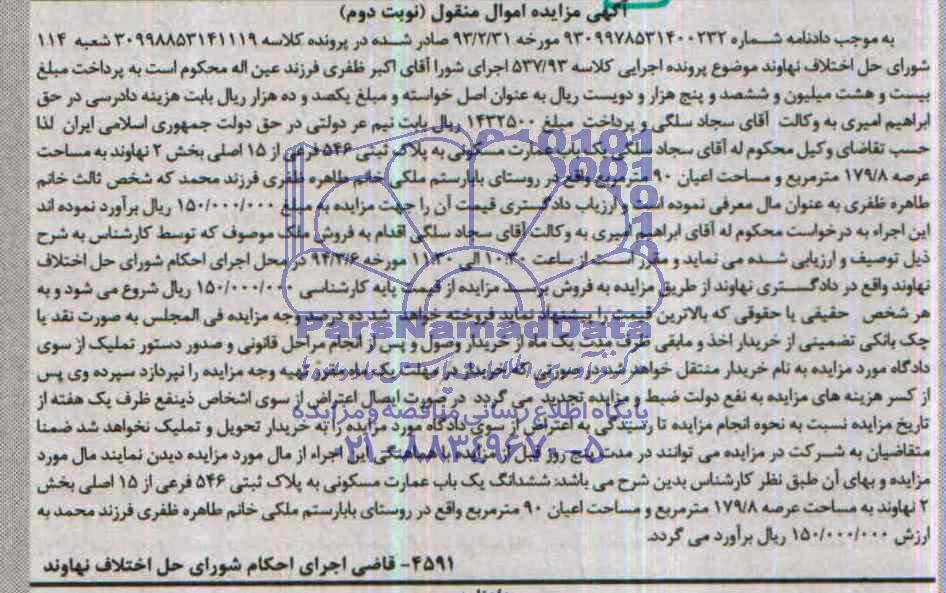 آگهی مزایده اموال منقول (نوبت دوم)
به موجب دادنامه شماره ۹۳۰۹۹۷۸۵۳۱۴۰۰۲۳۲ مورخه ۹۳/۲/۳۱ صادر شده در پرونده کلاسه ۳۰۹۹۸۸۵۳۱۴۱۱۱۹ شعبه ۱۱۴
شورای حل اختلاف نهاوند موضوع پرونده اجرایی کلاسه ۵۳۷/۹۳ اجرای شورا آقای اکبر ظفری فرزند عین اله محکوم است به پرداخت مبلغ
بیست و هشت میلیون و ششصد و پنج هزار و دویست ریال به عنوان اصل خواسته و مبلغ یکصد و ده هزار ریال بابت هزینه دادرسی در حق
ابراهیم امیری به وکالت آقای سجاد سلگی و پرداخت مبلغ ۱۴۳۲۵۰۰ ریال بابت نیم عر دولتی در حق دولت جمهوری اسلامی ایران لذا
حسب تقاضای وکیل محکوم له آقای سجاد سلگی یک باب عمارت مسکونی به پلاک ثبتی ۵۴۶ فرعی از ۱۵ اصلی بخش ۲ نهاوند به مساحت
عرصه ۱۷۹/۸ مترمربع و مساحت اعیان ۹۰ مترمربع واقع در روستای بابارستم ملکی خانم طاهره ظفری فرزند محمد که شخص ثالث خانم
طاهره ظفری به عنوان مال معرفی نموده است و ارزیاب دادگستری قیمت آن را جهت مزایده به مبلغ ۱۵۰/۰۰۰/۰۰۰ ریال برآورد نموده اند
این اجراء به درخواست محکوم له آقای ابراهیم امیری به وکالت آقای سجاد سلگی اقدام به فروش ملک موصوف که توسط کارشناس به شرح
ذیل توصیف و ارزیابی شده می نماید و مقرر است از ساعت ۱۰:۳۰ الی ۱۱:۳۰ مورخه ۹۴/۳/۶ در محل اجرای احکام شورای حل اختلاف
نهاوند واقع در دادگستری نهاوند از طریق مزایده به فروش برسد مزایده از قیمت پایه کارشناسی ۱۵۰/۰۰۰/۰۰۰ ریال شروع می شود و به
هر شخص حقیقی یا حقوقی که بالاترین قیمت را پیشنهاد نماید فروخته خواهد شد ده درصد وجه مزایده فی المجلس به صورت نقد یا
چک بانکی تضمینی از خریدار اخذ و مابقی ظرف مدت یک ماه از خریدار وصول و پس از انجام مراحل قانونی و صدور دستور تملیک از سوی
دادگاه مورد مزایده به نام خریدار منتقل خواهد شد در صورتی که خریدار در مهلت یک ماه مقرر بقیه وجه مزایده را نپردازد سپرده وی پس
از کسر هزینه های مزایده به نفع دولت ضبط و مزایده تجدید می گردد در صورت ایصال اعتراض از سوی اشخاص ذینفع ظرف یک هفته از
تاریخ مزایده نسبت به نحوه انجام مزایده تا رسیدگی به اعتراض از سوی دادگاه مورد مزایده را به خریدار تحویل و تملیک نخواهد شد ضمنا
متقاضیان به شرکت در مزایده می توانند در مدت پنج روز قبل از مزایده با هماهنگی این اجراء از مال مورد مزایده دیدن نمایند مال مورد
مزایده و بهای آن طبق نظر کارشناس بدین شرح می باشد: ششدانگ یک باب عمارت مسکونی به پلاک ثبتی ۵۴۶ فرعی از ۱۵ اصلی بخش
۲ نهاوند به مساحت عرصه ۱۷۹/۸ مترمربع و مساحت اعیان ۹۰ مترمربع واقع در روستای بابارستم ملکی خانم طاهره ظفری فرزند محمد به
ارزش ۱۵۰/۰۰۰/۰۰۰ ریال برآورد می گردد.
۴۵۹۱- قاضی اجرای احکام شورای حل اختلاف نهاوند
ParsNamadData
پایگاه اطلاع رسانی مناقصه و مزایده
۰۲۱-۸۸۳۴۹۶۷۰-۵